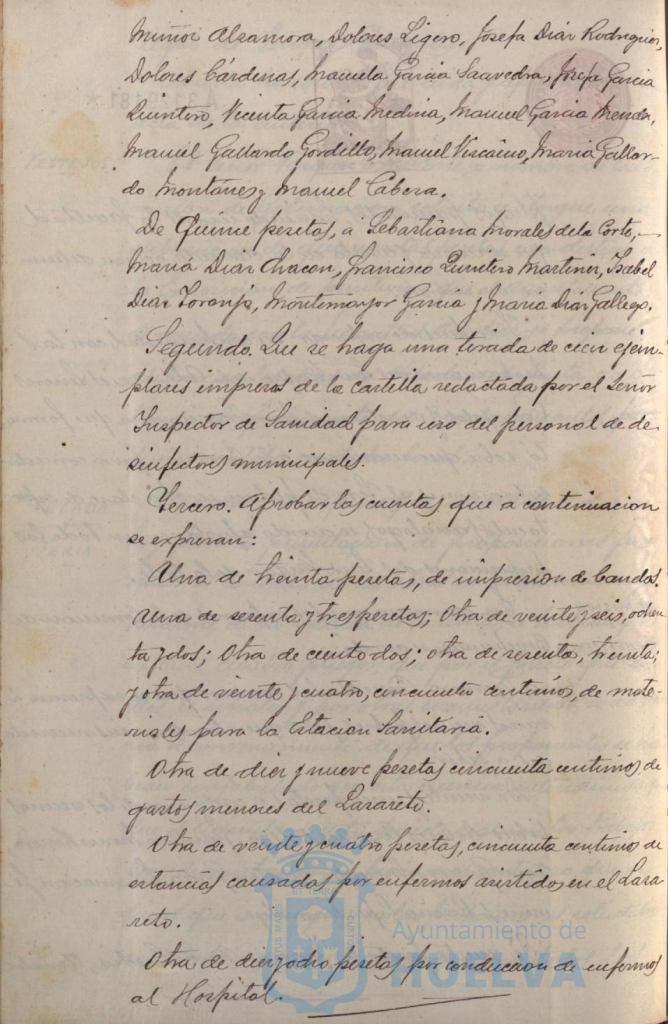 Muñoz Alzamora, Dolores Ligero, Josefa Diaz Rodriguez,
Dolores Cárdenas, Manuela Garcia Saavedra, Josefa Garcia
Quintero, Vicenta Garcia Medina, Manuel Garcia
Manuel Gallardo Gordillo, Manuel Viscáino, Maria Gallar-
do Montánes y Manuel Cabera.
De Quince pesetas, á Sebastiana Morales de la Corte,—
Maria Diaz Chacon, Francisco Quintero Martinez, Isabel
Diaz Toranjo, Montemayor Garcia y Maria Diaz Gallego.
Segundo. Que se haga una tirada de cien ejem-
plares impresos de la cartilla redactada por el Señor
Inspector de Sanidad para uso del personal de de-
sinfectores municipales.
Tercero. Aprobar las cuentas que á continuacion
se expresan:
Una de treinta pesetas, de impresion de bandos.
Una de sesenta y tres pesetas; Otra de veinte y seis, ochen
ta y dos; Otra de ciento dos; otra de sesenta, treinta;
y otra de veinte y cuatro, cincuenta centimos, de mate-
riales para la Estacion Sanitaria.
Otra de diez y nueve pesetas cincuenta centimos de
gastos menores del Lazareto.
Otra de veinte y cuatro pesetas, cincuenta centimos de
estancias causadas por enfermos asistidos en el Laza
reto.
Otra de diez y ocho pesetas por conduccion de enfermos
al Hospital.
Ayuntamiento de
HUELVA